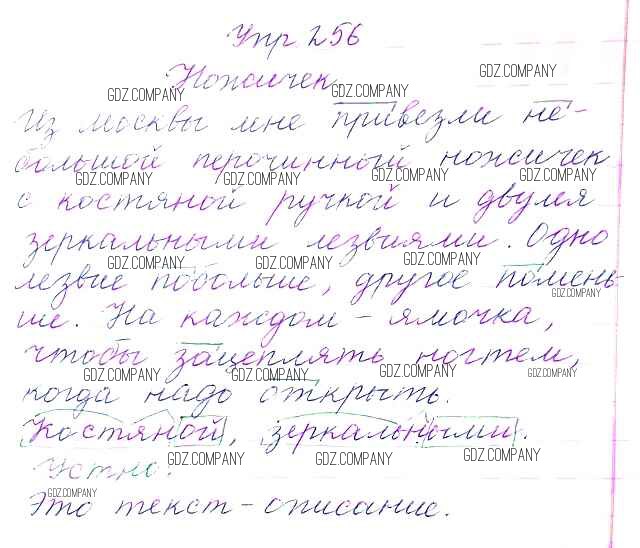 Упр 256
Ножичек
GDZ.COMPANY GDZ.COMPANY GDZ.COMPANY
Из Москвы мне привезли не-
большой перочинный ножичек
GDZ.COMPANY GDZ.COMPANY GDZ.COMPANY GDZ.COMPANY
с костяной ручкой и двумя
зеркальными лезвиями. Одно
GDZ.COMPANY GDZ.COMPANY GDZ.COMPANY
лезвие побольше, другое помень-
GDZ.COMPANY
ше. На каждом - ямочка,
чтобы зацеплять ногтем,
GDZ.COMPANY GDZ.COMPANY GDZ.COMPANY GDZ.COMPANY
когда надо открыть.
Костяной, зеркальными.
GDZ.COMPANY GDZ.COMPANY GDZ.COMPANY
Устно.
GDZ.COMPANY
Это текст - описание.